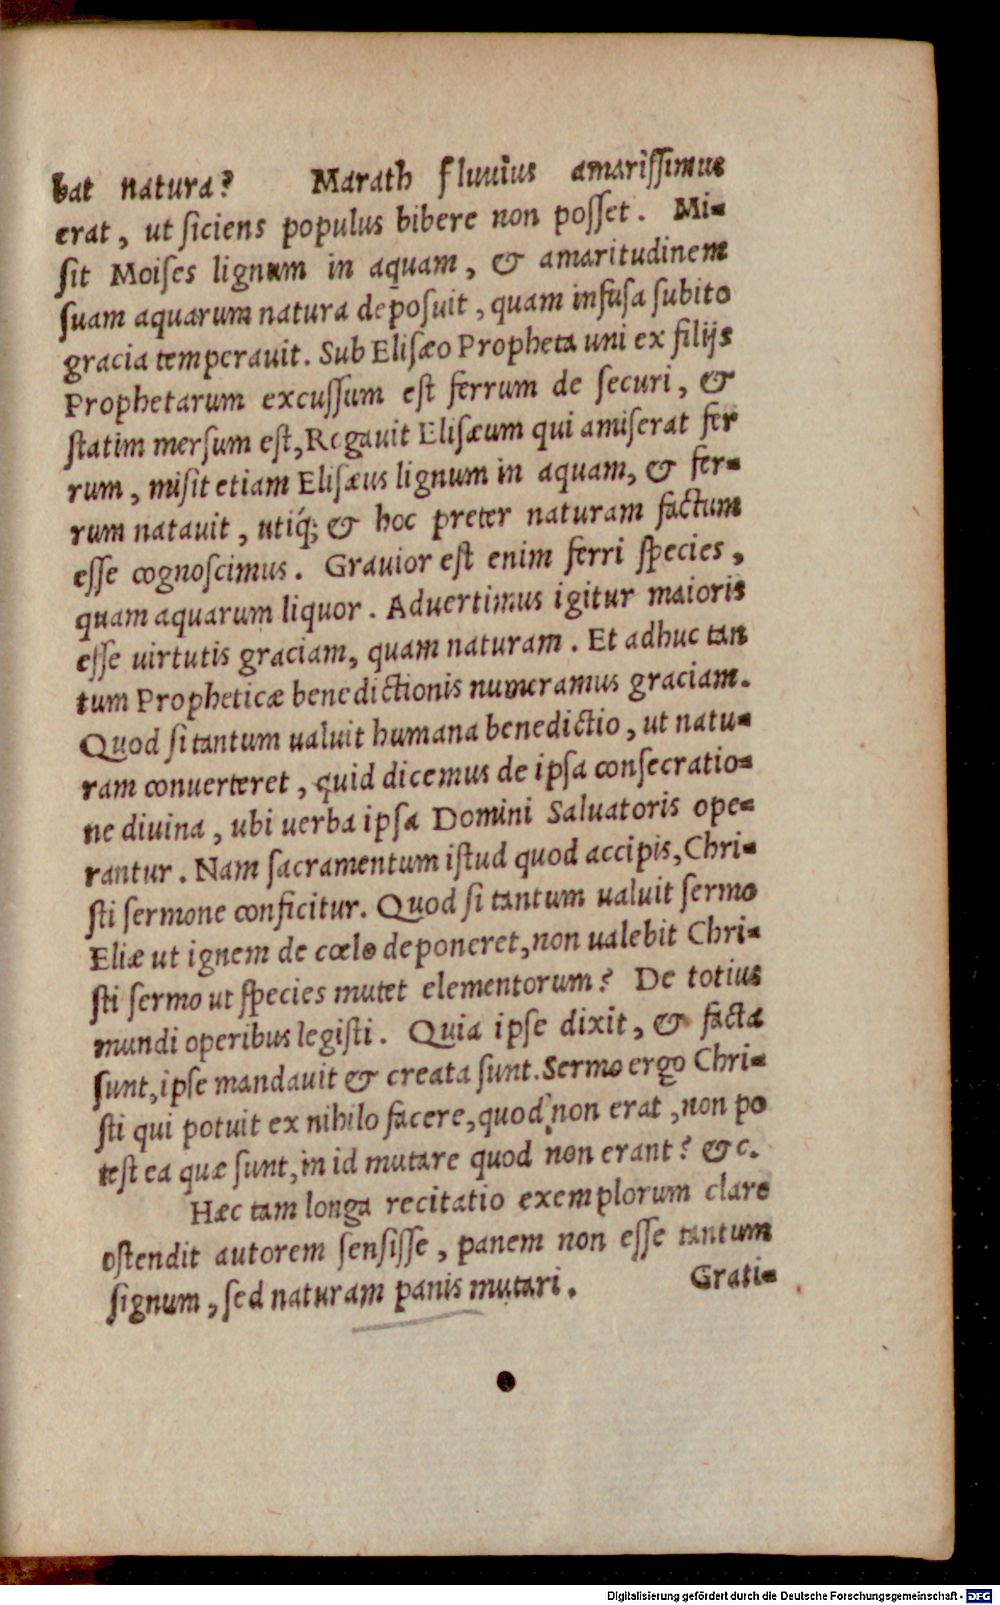 bat natura? Marath fluuius amarißimus
erat, ut ſiciens populus bibere non poſſet. Mi-
ſit Moiſes lignum in aquam, & amaritudinem
ſuam aquarum natura depoſuit, quam infuſa ſubito
gracia temperauit. Sub Eliſæo Propheta uni ex filijs
Prophetarum excuſſum eſt ferrum de ſecuri, &
ſtatim merſum eſt, Rogauit Eliſæum qui amiſerat fer
rum, miſit etiam Eliſæus lignum in aquam, & fer-
rum natauit, utiq́; & hoc preter naturam factum
eſſe cognoſcimus. Grauior eſt enim ferri ſpecies,
quam aquarum liquor. Aduertimus igitur maioris
eſſe uirtutis graciam, quam naturam. Et adhuc tan
tum Propheticæ benedictionis numeramus graciam.
Quod ſi tantum ualuit humana benedictio, ut natu-
ram conuerteret, quid dicemus de ipſa conſecratio-
ne diuina, ubi uerba ipſa Domini Saluatoris ope-
rantur. Nam ſacramentum iſtud quod accipis, Chri-
ſti ſermone conficitur. Quod ſi tantum ualuit ſermo
Eliæ ut ignem de cœlo deponeret, non ualebit Chri-
ſti ſermo ut ſpecies mutet elementorum? De totius
mundi operibus legiſti. Quia ipſe dixit, & facta
ſunt, ipſe mandauit & creata ſunt. Sermo ergo Chri-
ſti qui potuit ex nihilo facere, quod non erat, non po
teſt ea quæ ſunt, in id mutare quod non erant? &c.
Hæc tam longa recitatio exemplorum clare
oſtendit autorem ſenſiſſe, panem non eſſe tantum
ſignum, ſed naturam panis mutari. Grati-
Digitalisierung gefördert durch die Deutsche Forschungsgemeinschaft - DFG